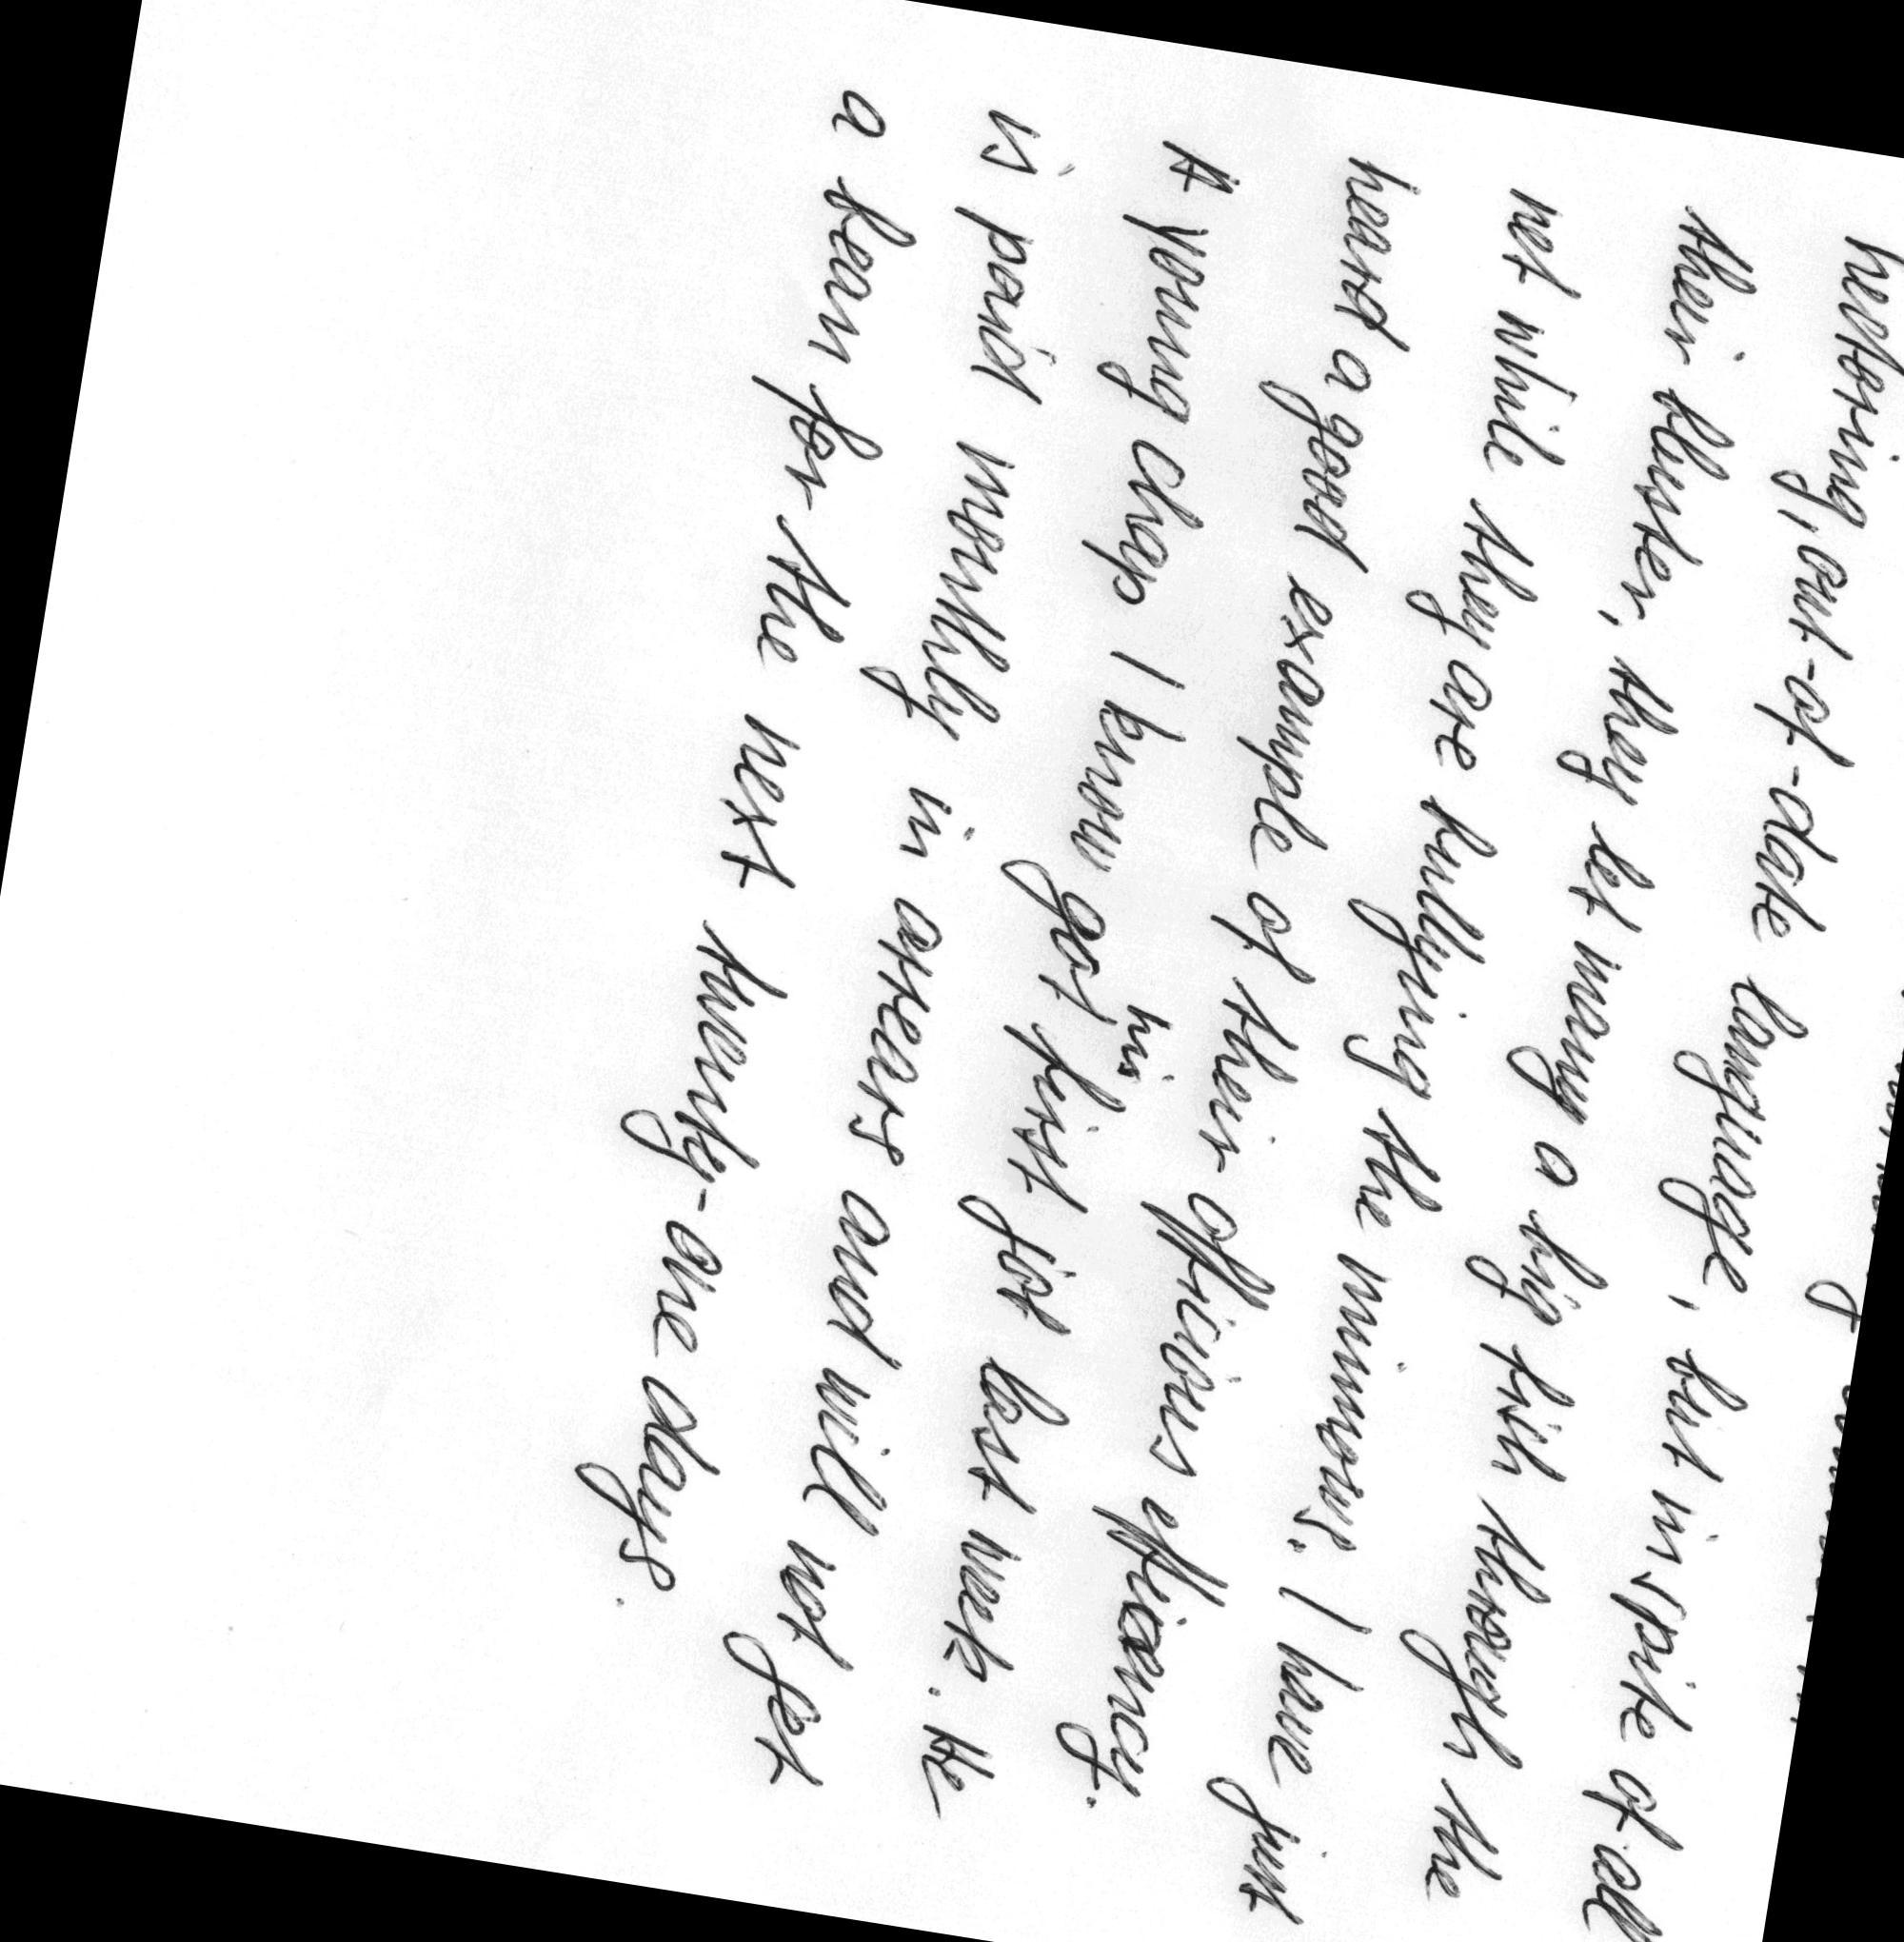 hectoring, out-of-date language, but in spite of all
their bluster, they let many a big fish through the
net while they are bullying the minnows. I have just
heard a good example of their officious efficiency.
A young chap I know got his first job last week. He
is paid monthly in arrears and will not get
a bean for the next twenty-one days.